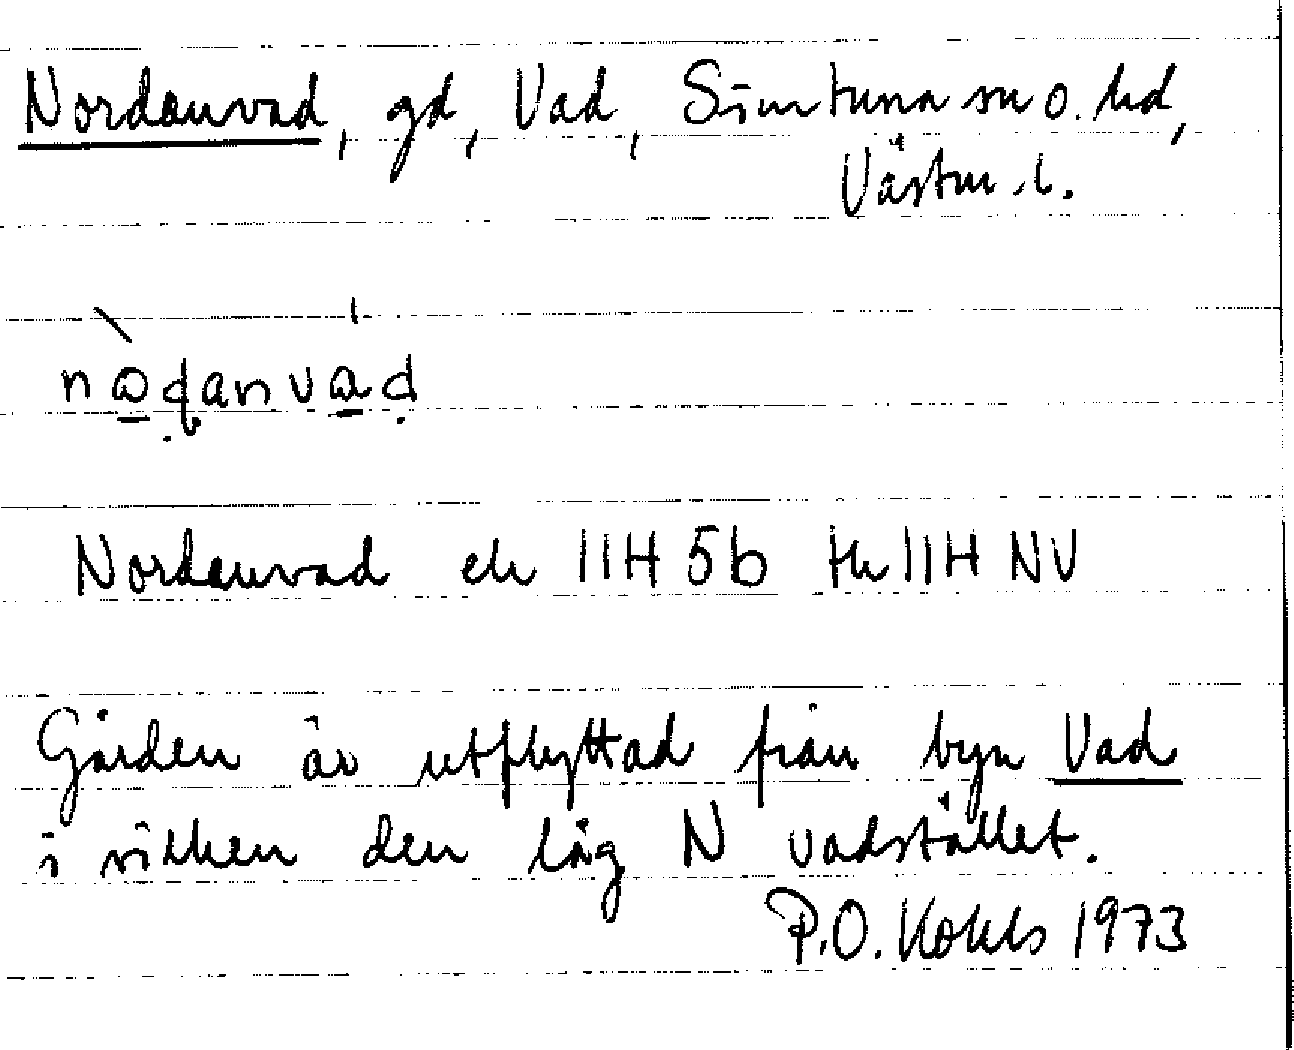 Nordanvad, gd, Vad, Simtuna sn o. hd,
Västm. l.
Nordanvad ek 11H 5b tk 11H NV
Gården är utflyttad från byn Vad
i vilken den låg N vadstället.
P.O. Kohls 1973